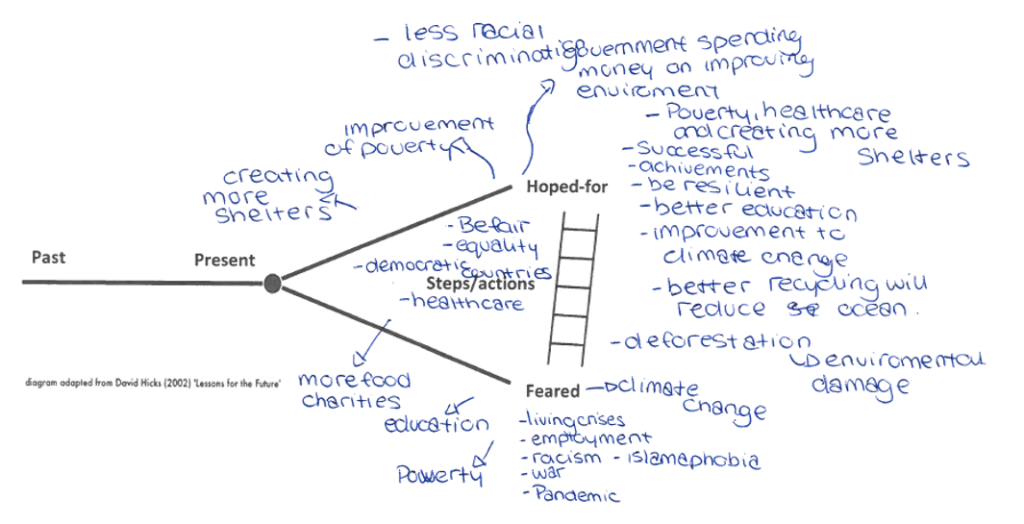 - less racial
discrimination
Government spending
money on improving
enviroment
- Poverty, healthcare
and creating more
shelters
improvement
of poverty
creating
more
shelters
Hoped-for
- Successful
- achivements
- be resilient
- better education
- improvement to
climate change
- better recycling will
reduce se ocean.
- Be fair
- equality
- democratic
countries
Steps/actions
- healthcare
Past
Present
- deforestation
enviromental
damage
diagram adapted from David Hicks (2002) 'Lessons for the Future'
more food
charities
education
Poverty
Feared
climate
change
- living crises
- employment
- racism - islamaphobia
- war
- Pandemic